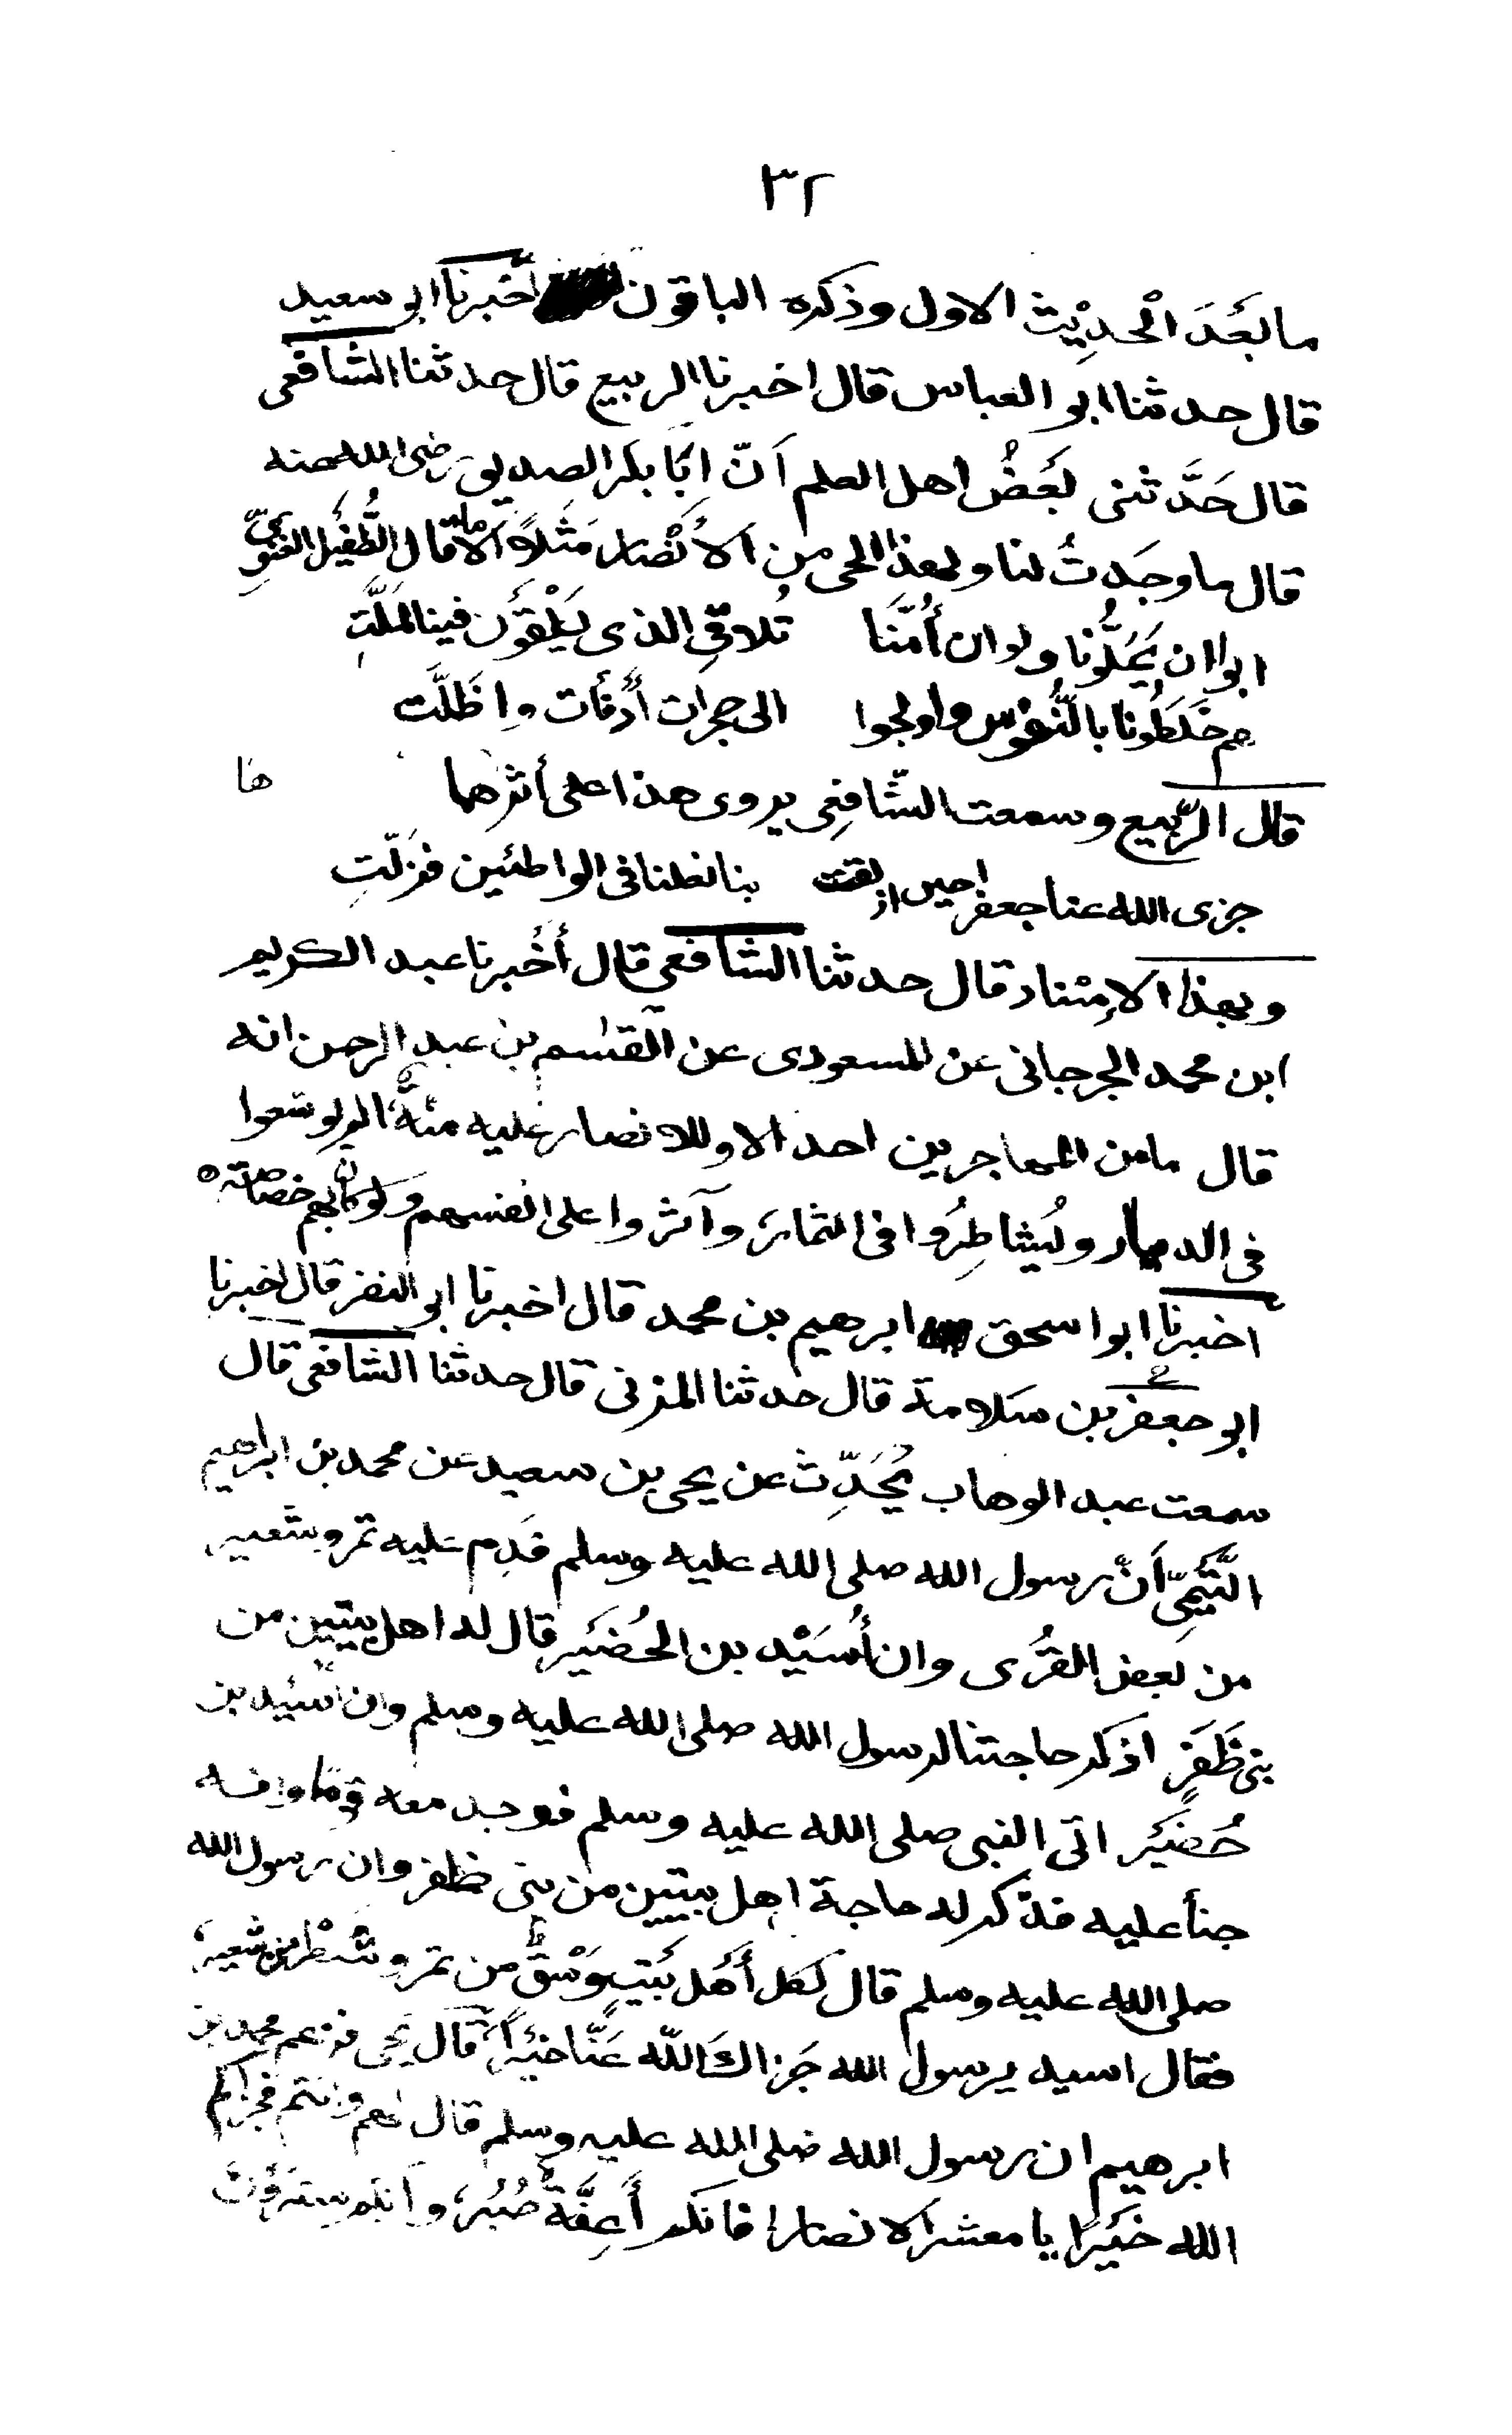 ٣٢
ما بَعْدَ الْحدِيْث الاول وذكره الباقون اخبرنا ابو سعيد
قال حدثنا ابو العباس قال اخبرنا الربيع قال حدثنا الشافعى
قال حَدَّثنى بَعْضُ اهل العلم اَنّ اَبَا بكر الصديق رضى الله عنه
قال ما وجَدتُ لنا ولهذا الحى من الاَنْصار مَثَلاً الا ما قال الطُّفَيْل الغنوِىّ
ابوا ان يَمَلُّونا ولو ان أُمَّنَا تُلاقِى الذى يَلْقَوْن فينا لمَلَّتِ
هم خَلَطُونا بالنُّفوس واولجوا الى حجرات أدْفَأت واظَلَّت
قال الرّبيع وسمعت الشّافعِى يروى هذا على أثرهما
ها
جزى الله عنا جعفرا حين ازلقت بنا نعلنا فى الواطئين فزَلّتِ
وبهذا الاِسْناد قال حدثنا الشافعى قال أَخْبرنا عبد الكريم
ابن محمد الجرجانى عن المسعودى عن القاسم بن عبد الرحمن انه
قال ما من المهاجرين احد الا وللانصار عليه منّة الم يوسّعوا
فى الديار ويُشاطِرُوا فى الثمار وآثروا على انفسهم ولو كان بهم خصاصة ه
اخبرنا ابو اسحق ابرهيم بن محمد قال اخبرنا ابو النضر قال اخبرنا
ابو جعفر بن سَلامة قال حدثنا المزنى قال حدثنا الشافعى قال
سمعت عبد الوهاب يُحَدِّث عن يحيى بن سعيد عن محمد بن ابراهيم
التَّيْمِىّ اَنّ رسول الله صلى الله عليه وسلم قَدِم عليه تمر وشعير
من بعض القُرَى وان أُسَيْد بن الحُضَيْر قال له اهل بيتين من
بنى ظَفَرٍ اذكر حاجتنا لرسول الله صلى الله عليه وسلم وان اسَيْد بن
حُضَيْر اتى النبى صلى الله عليه وسلم فوجد معه قومًا وانه
جنأ عليه فذكر له حاجة اهل بيتين من بنى ظفر وان رسول الله
صلى الله عليه وسلم قال لكل أَهْل بَيْتٍ وَسْقٌ من تمر وشَطْر من شعير
فقال اسيد يرسول الله جَزاكَ اللّه عَنَّا خَيْرًا قال يَحيى فزعم محمد بن
ابرهيم ان رسول الله صلى الله عليه وسلم قال نعم وانتم فجزاكم
الله خَيْرًا يا معشر الانصار فانكم أَعِفَّةٌ صُبُرٌ وانكم سترَوْن